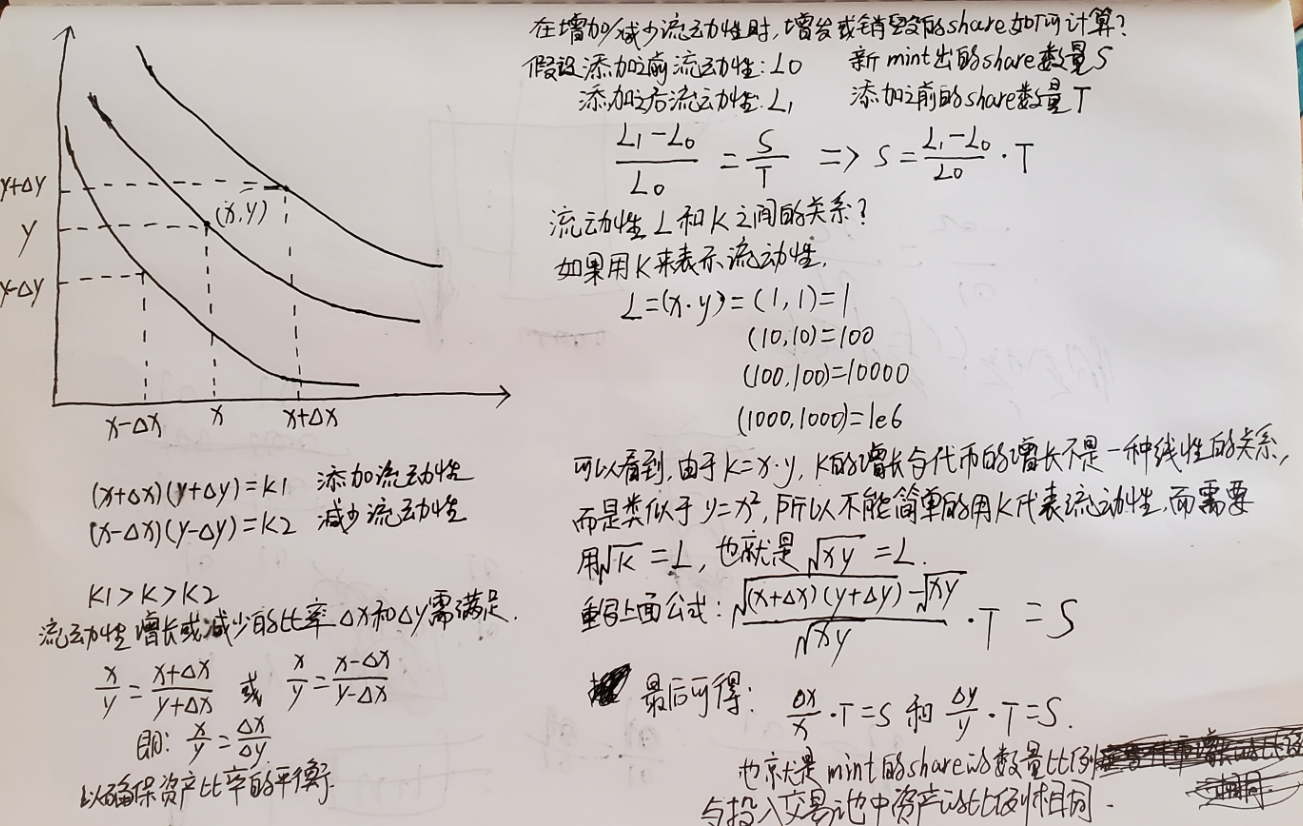 y+Δy
y
y-Δy
(x,y)
x-Δx
x
x+Δx
(x+Δx)(y+Δy)=K1 添加流动性
(x-Δx)(y-Δy)=K2 减少流动性
K1>K>K2
流动性增长或减少的比率Δx和Δy需满足.
x/y = (x+Δx)/(y+Δx) 或 x/y = (x-Δx)/(y-Δx)
即: x/y = Δx/Δy
以确保资产比率的平衡.
在增加/减少流动性时,增发或销毁的share如何计算?
假设添加之前流动性:L0 新mint出的share数量S
添加之后流动性:L1 添加之前的share数量T
(L1-L0)/L0 = S/T => S = (L1-L0)/L0 · T
流动性L和K之间的关系?
如果用K来表示流动性,
L=(x·y)=(1,1)=1
(10,10)=100
(100,100)=10000
(1000,1000)=1e6
可以看到,由于K=x·y,K的增长与代币的增长不是一种线性的关系,
而是类似于y=x²,所以不能简单的用K代表流动性,而需要
用√K=L,也就是√xy=L.
重写上面公式: (√(x+Δx)(y+Δy) - √xy)/√xy · T = S
最后可得: Δx/x · T=S 和 Δy/y · T=S.
也就是mint的share的数量比例
与投入交易池中资产的比例相同.